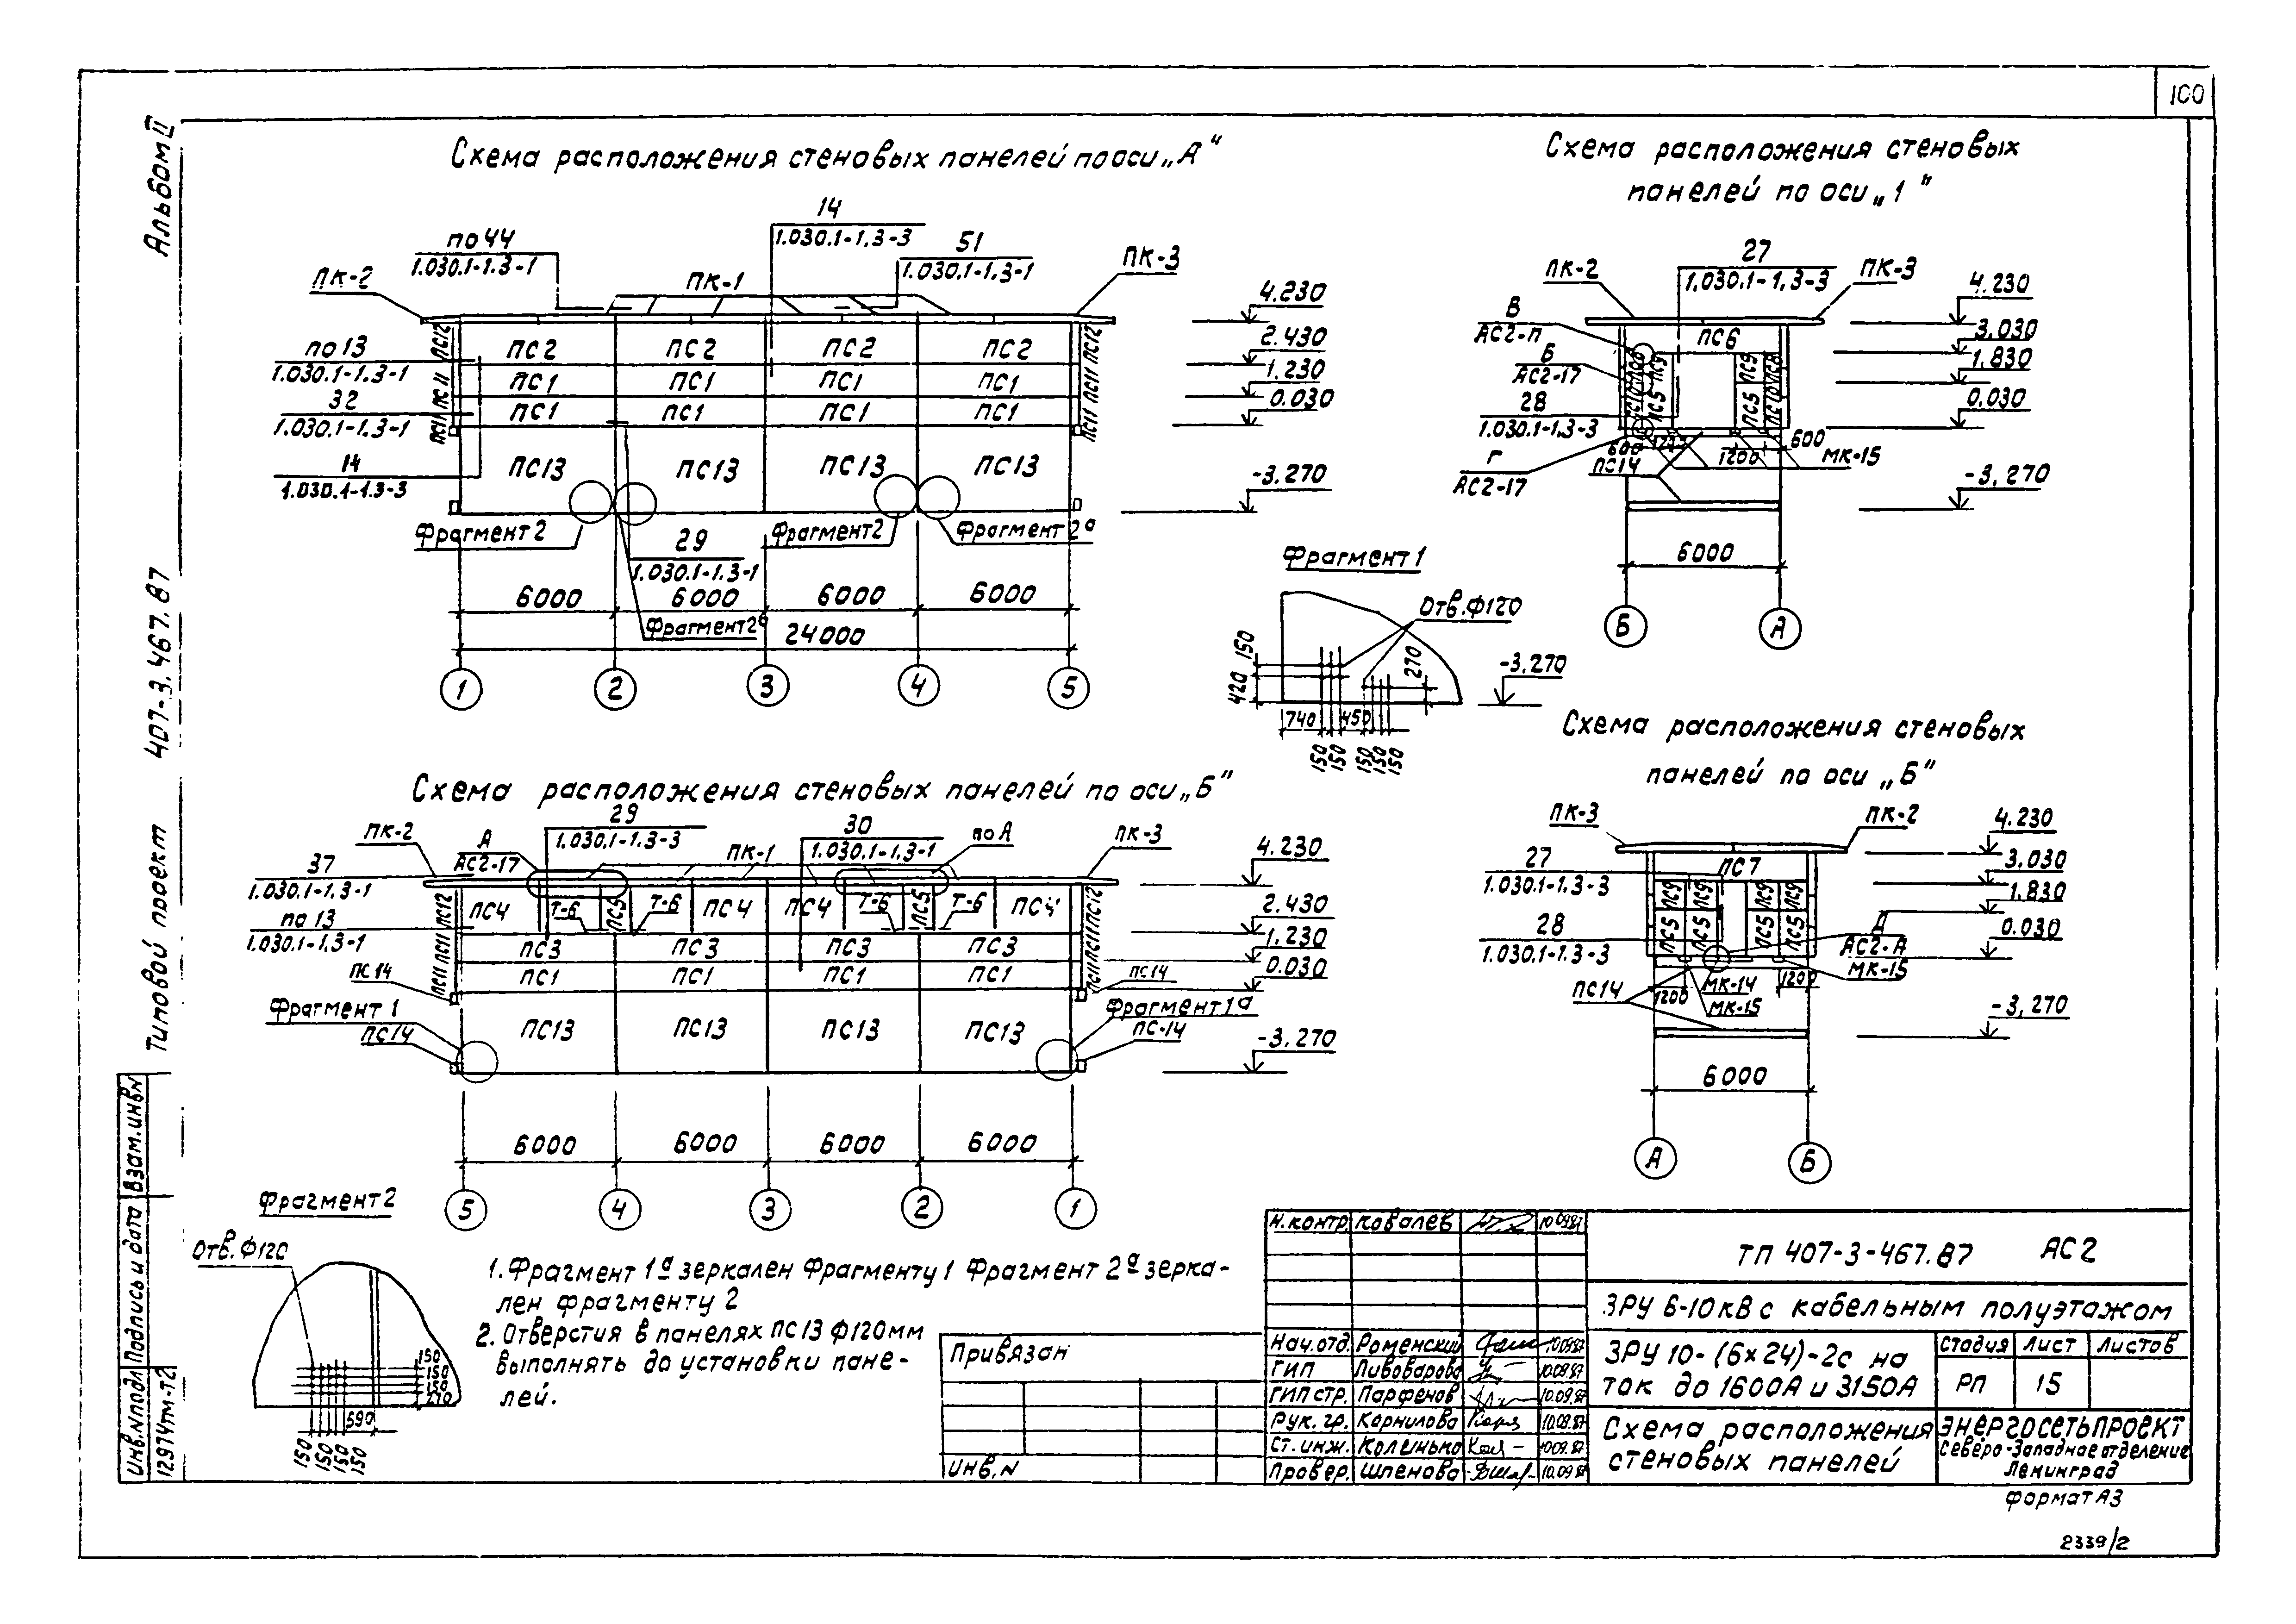 100
Альбом II
Типовой проект 407-3.467.87
Схема расположения стеновых панелей по оси „А"
по 44
1.030.1-1.3-1
14
1.030.1-1.3-3
51
1.030.1-1.3-1
ПК-2
ПК-1
ПК-3
по 13
1.030.1-1.3-1
32
1.030.1-1.3-1
14
1.030.1-1.3-3
ПС12
ПС11
ПС11
ПС2 ПС2 ПС2 ПС2
ПС1 ПС1 ПС1 ПС1
ПС1 ПС1 ПС1 ПС1
ПС13 ПС13 ПС13 ПС13
ПС12
ПС11
ПС11
4.230
2.430
1.230
0.030
-3.270
Фрагмент 2
29
1.030.1-1.3-1
Фрагмент 2
Фрагмент 2а
Фрагмент 2а
6000 6000 6000 6000
24000
1 2 3 4 5
Схема расположения стеновых
панелей по оси „1"
27
1.030.1-1.3-3
ПК-2
ПК-3
В
АС2-П
Б
АС2-17
28
1.030.1-1.3-3
Г
АС2-17
ПС6
ПС9
ПС10
ПС5
ПС9
ПС8
ПС5
ПС10
600
1200
1200
600
МК-15
ПС14
4.230
3.030
1.830
0.030
-3.270
6000
Б А
Фрагмент 1
Отв. Ф120
150
420
270
-3.270
740
450
150
150
150
150
150
Схема расположения стеновых панелей по оси „Б"
29
1.030.1-1.3-3
30
1.030.1-1.3-1
ПК-2
А
АС2-17
ПК-1
по А
ПК-3
37
1.030.1-1.3-1
по 13
1.030.1-1.3-1
ПС14
Фрагмент 1
ПС14
ПС12
ПС11
ПС11
ПС4 Т-6 ПС5 Т-6 ПС4 ПС4 Т-6 ПС5 Т-6 ПС4
ПС3 ПС3 ПС3 ПС3
ПС1 ПС1 ПС1 ПС1
ПС13 ПС13 ПС13 ПС13
ПС12
ПС11
ПС11
ПС14
Фрагмент 1а
ПС-14
4.230
2.430
1.230
0.030
-3.270
6000 6000 6000 6000
5 4 3 2 1
Схема расположения стеновых
панелей по оси „Б"
ПК-3
ПК-2
27
1.030.1-1.3-3
28
1.030.1-1.3-3
ПС7
ПС9 ПС9 ПС9 ПС9
ПС5 ПС5 ПС5 ПС5
Д
АС2-А
МК-15
ПС14
1200
МК-14
МК-15
1200
4.230
3.030
1.830
0.030
-3.270
6000
А Б
Фрагмент 2
Отв. Ф120
150
150
150
270
590
150
150
150
150
1. Фрагмент 1а зеркален Фрагменту 1 Фрагмент 2а зерка-
лен фрагменту 2
2. Отверстия в панелях ПС13 Ф120мм
выполнять до установки пане-
лей.
Привязан
Инв. N
Н.контр. Ковалев 10.09.87
Нач.отд. Роменский 10.09.87
ГИП Пивоварова 10.09.87
ГИП стр. Парфенов 10.09.87
Рук. гр. Корнилова 10.09.87
Ст. инж. Колинько 10.09.87
Провер. Шленова 10.09.87
ТП 407-3-467.87 АС2
ЗРУ 6-10кВ с кабельным полуэтажом
ЗРУ 10-(6х24)-2с на
ток до 1600А и 3150А
Стадия Лист Листов
РП 15
Схема расположения
стеновых панелей
ЭНЕРГОСЕТЬПРОЕКТ
Северо-Западное отделение
Ленинград
Формат А3
2339/2
Взам.инв N
Подпись и дата
Инв.N подл
12974тм-т2